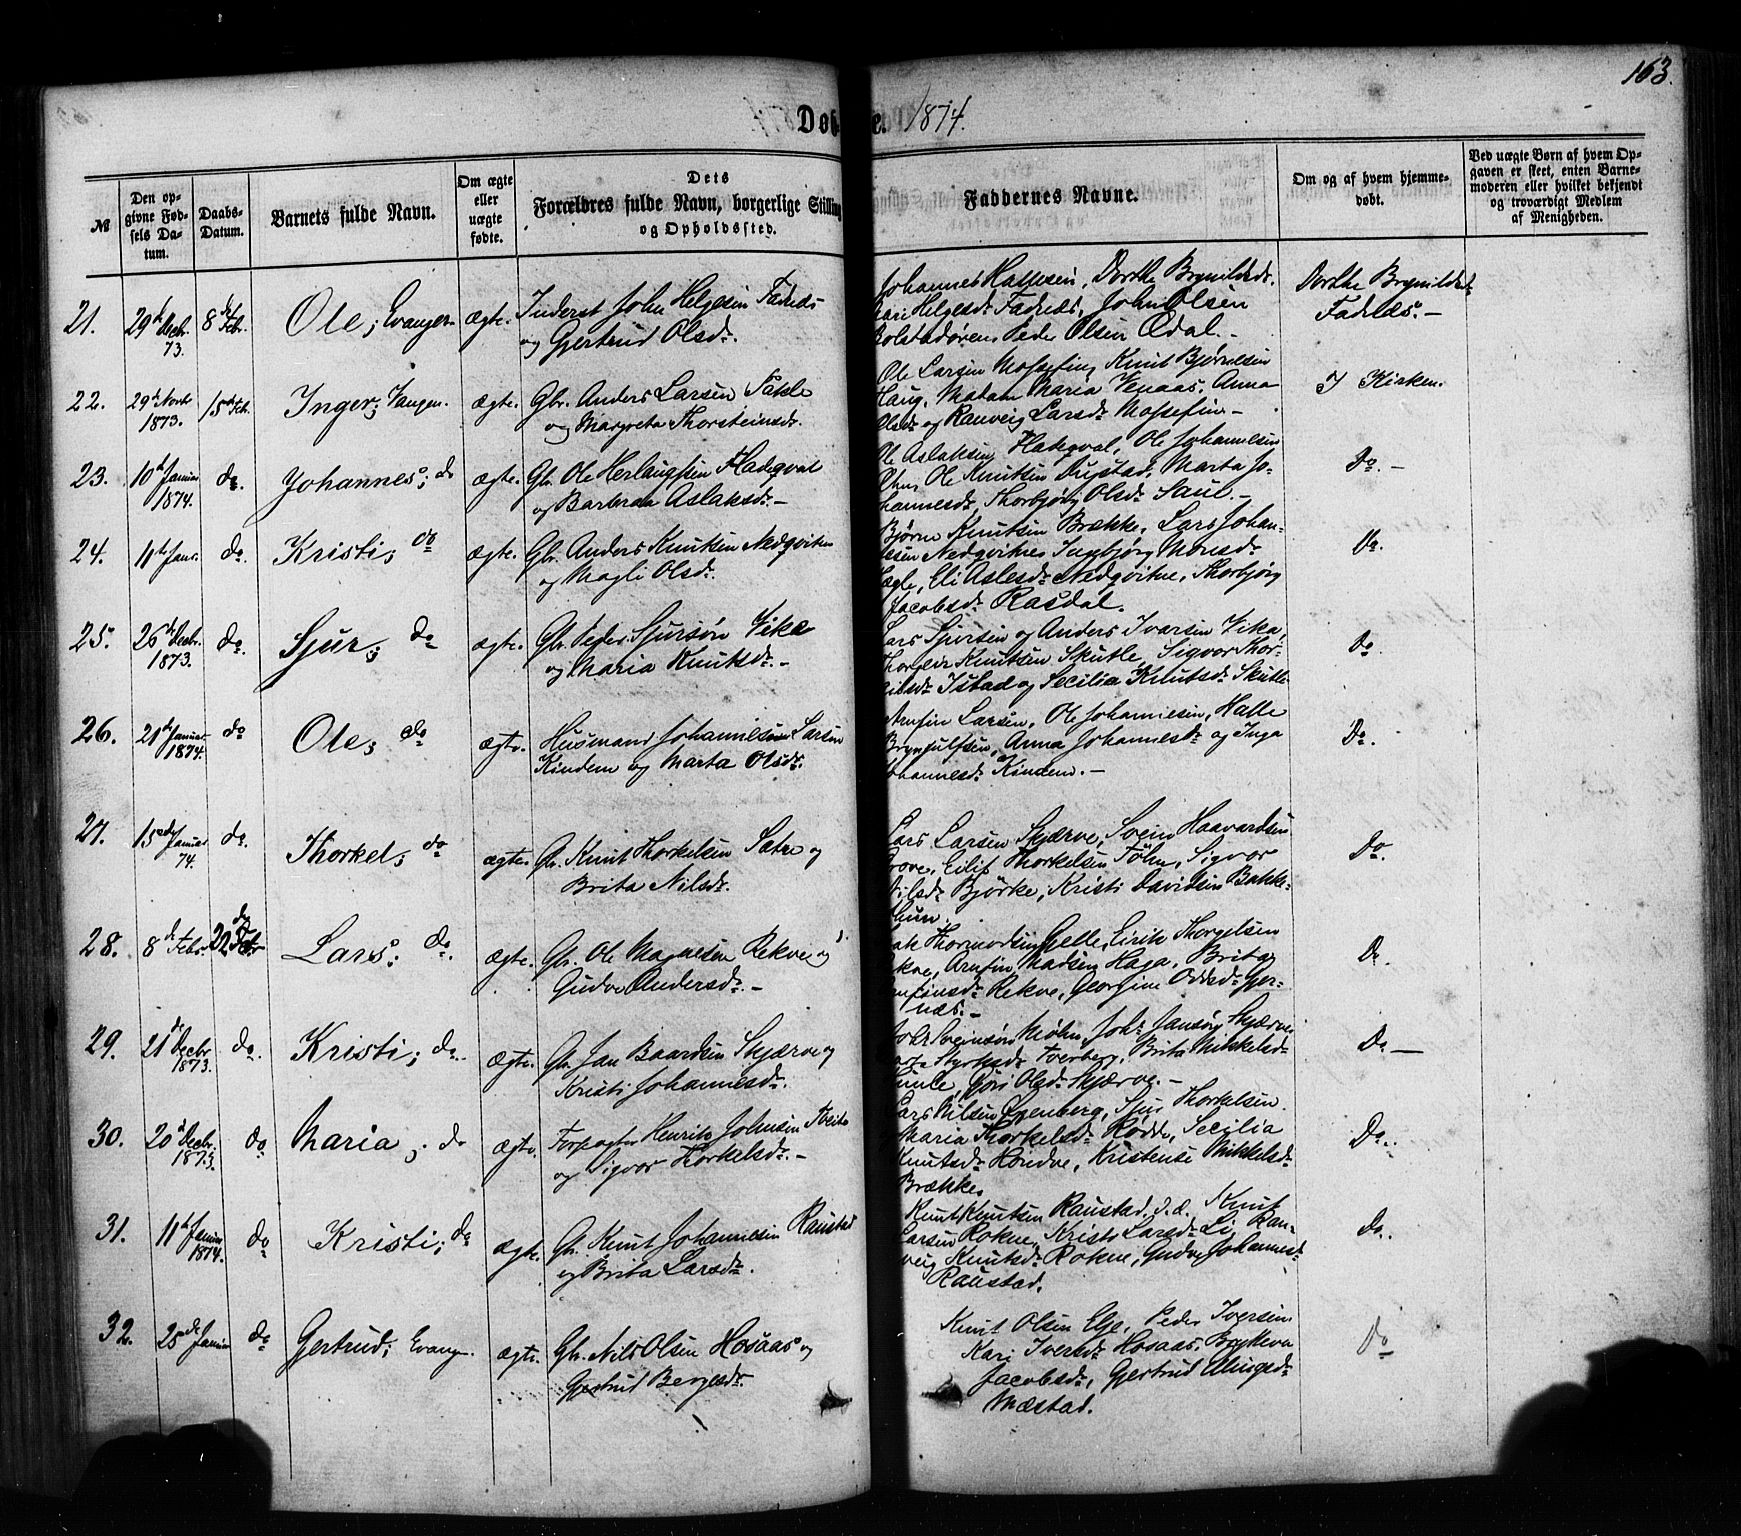 163.
Døbte. 1874.
№
Den opgivne Fødsels Datum.
Daabs-Datum.
Barnets fulde Navn.
Om ægte eller uægte fødte.
Dets Forældres fulde Navn, borgerlige Stilling og Opholdssted.
Faddernes Navne.
Om og af hvem hjemmedøbt.
Ved uægte Børn af hvem Opgaven er skeet, enten Barnemoderen eller hvilket bekjendt og troværdigt Medlem af Menigheden.
21. 29de Decbr. 73. 8de Febr. Ole; Evanger. ægte. Inderst John Helgesen Fadnes
og Gjertrud Olsdr.
Johannes Hallesen, Dorthe Brynildsdr.
Kari Helgesdr Fadnes, John Olsen
Bolstadøren, Peder Olsen Ødal.—
Dorthe Brynildsdr.
Fadnæs.—
22. 29de Novbr 1873. 15de Feb. Inger; Vangen. ægte. Gbr. Anders Larsen Sæle
og Margreta Thorsteinsdr.
Ole Larsen Mossefin, Knut Bjørnesen
Haug, Madam Maria Venaas, Anna
Olsdr og Ranveig Larsdr Mossefin—
I Kirken.
23. 10de Januar 1874. do. Johannes; do ægte. Gbr. Ole Herlaugsen Fladeqval
og Barbra Aslaksdr.—
Ole Aslaksen Fladeqval, Ole Johannesen
Ole Knutsen Dugstad, Marta Jo-
hannesdr, Thorbjørg Olsdr Saue.—
Do.—
24. 11te Janr. do. Kristi; do ægte. Gbr. Anders Knutsen Nedqvitne
og Magli Olsdr.
Bjørn Knutsen Brække, Lars Johan-
nesen Nedqvitne, Ingebjørg Monsdr
Eli Aslesdr Nedqvitne, Thorbjørg
Jacobsdr Rasdal.
Do.
25. 26de Decbr. 1873. do. Sjur; do ægte. Gbr. Peder Sjursøn Vika
og Maria Knutsdr.—
Lars Sjursen og Anders Ivarsen Vika,
Thorgeir Knutsen Skutle, Sigvor Thor-
Istad og Secilia Knutsdr Skutle
Do.
26. 21de Januar 1874. do Ole; do ægte. Husmand Johannes Larsen
Kindem og Marta Olsdr.
Arnfin Larsen, Ole Johannesen, Halle
Brynjulfsen, Anna Johannesdr og Inga
Johannesdr Kindem.—
Do.
27. 15de Januar 74. do. Thorkel; do ægte. Gbr. Knut Thorkelsen Sætre og
Brita Nilsdr.
Lars Larsen Skjærve, Svein Haavardsen
Grove, Eilif Thorkelsen Tøhn, Sigvor
Nilsdr Bjørke, Kristi Davidsen Bakke-
thun.
Do.
28. 8de Febr. 22de Febr Lars; do. ægte. Gbr. Ole Magnesen Rekve og
Gudve Andersdr.—
Thormodsen Gjelle, Eirik Thorgelsen
Rekve, Arnfin Madsen Haga, Brita
Arnfinsdr Rekve, Georgine Oddsdr Gjer-
næs.—
Do.
29. 21de Decbr 1873. do. Kristi; do. ægte. Gbr. Jan Baardsen Skjærve og
Kristi Johannesdr.
Sveinsøn Møhn, Johs Jansøn Skjærve
Styrksdr Tverberg, Brita Mikkelsdr
Hunde, Guri Olsdr Skjærve.—
Do—
30. 20de Decbr. 1873. do Maria; do ægte. Forpagter Henrik Johnsen Tveite
og Sigvor Thorkelsdr.—
Lars Nilsen Gjenberg, Sjur Thorkelsen
Maria Thorkelsdr Rødde, Secilia
Knutsdr Hondve, Kristense Mikkelsdr
Brække.
Do.
31. 11te Januar 1874. do Kristi; do ægte. Gbr. Knut Johannesen Raustad
og Brita Larsdr.
Knut Knutsen Raustad, s.d., Knut
Larsen Rokne, Kristi Larsdr Li, Ran-
veig Knutsdr Rokne, Gudve Johannesdr
Raustad.
Do.
32. 25de Januar do Gertrud; Evang. ægte. Gbr. Nils Olsen Hosaas og
Gjertrud Bergesdr.
Knut Olsen Ege, Peder Iversen
Kari Iversdr Hosaas, Brykteva
Jacobsdr, Gjertrud Ellingsdr
Mæstad.
Do